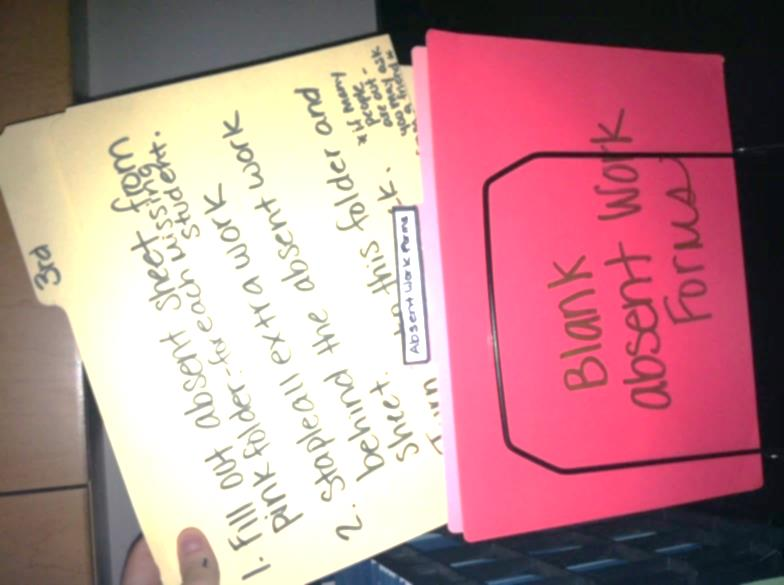 3rd
1. Fill out absent sheet from
pink folder - for each missing
student.
2. Staple all extra work
behind the absent work
sheet.
Turn this folder and
k.
* if many
people
are out -
you may ask
a friend
Absent Work Forms
Blank
absent work
Forms